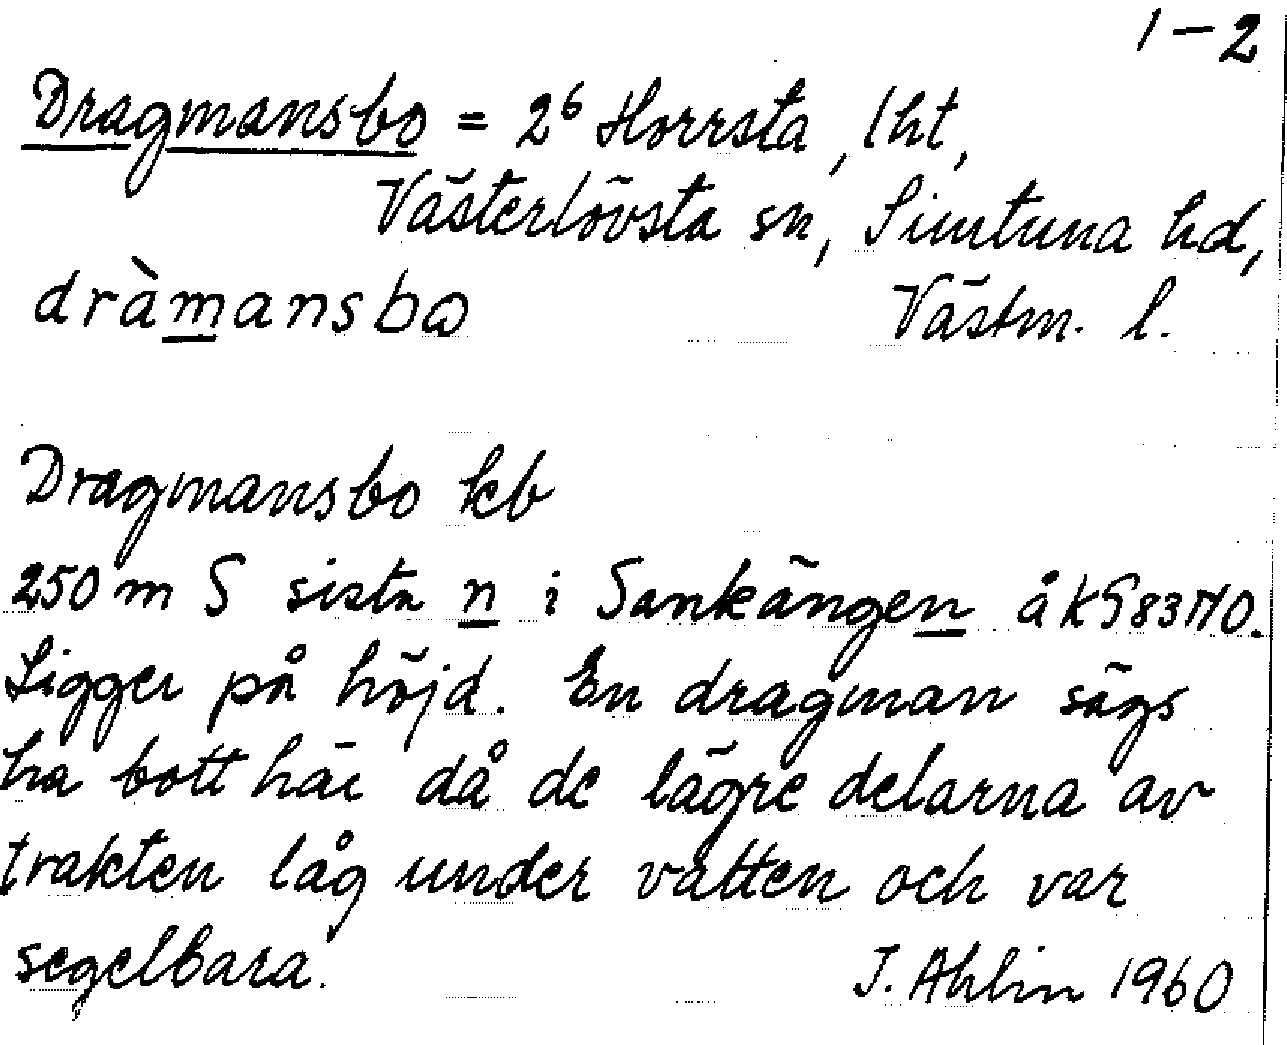 1-2
Dragmansbo = 2⁶ Horrsta, lht,
Västerlövsta sn, Simtuna hd,
dràmansbω Västm. l.
Dragmansbo kb
250 m S sista n i Sankängen å kS 83 NO.
Ligger på höjd. En dragman sägs
ha bott här då de lägre delarna av
trakten låg under vatten och var
segelbara. J. Ahlin 1960